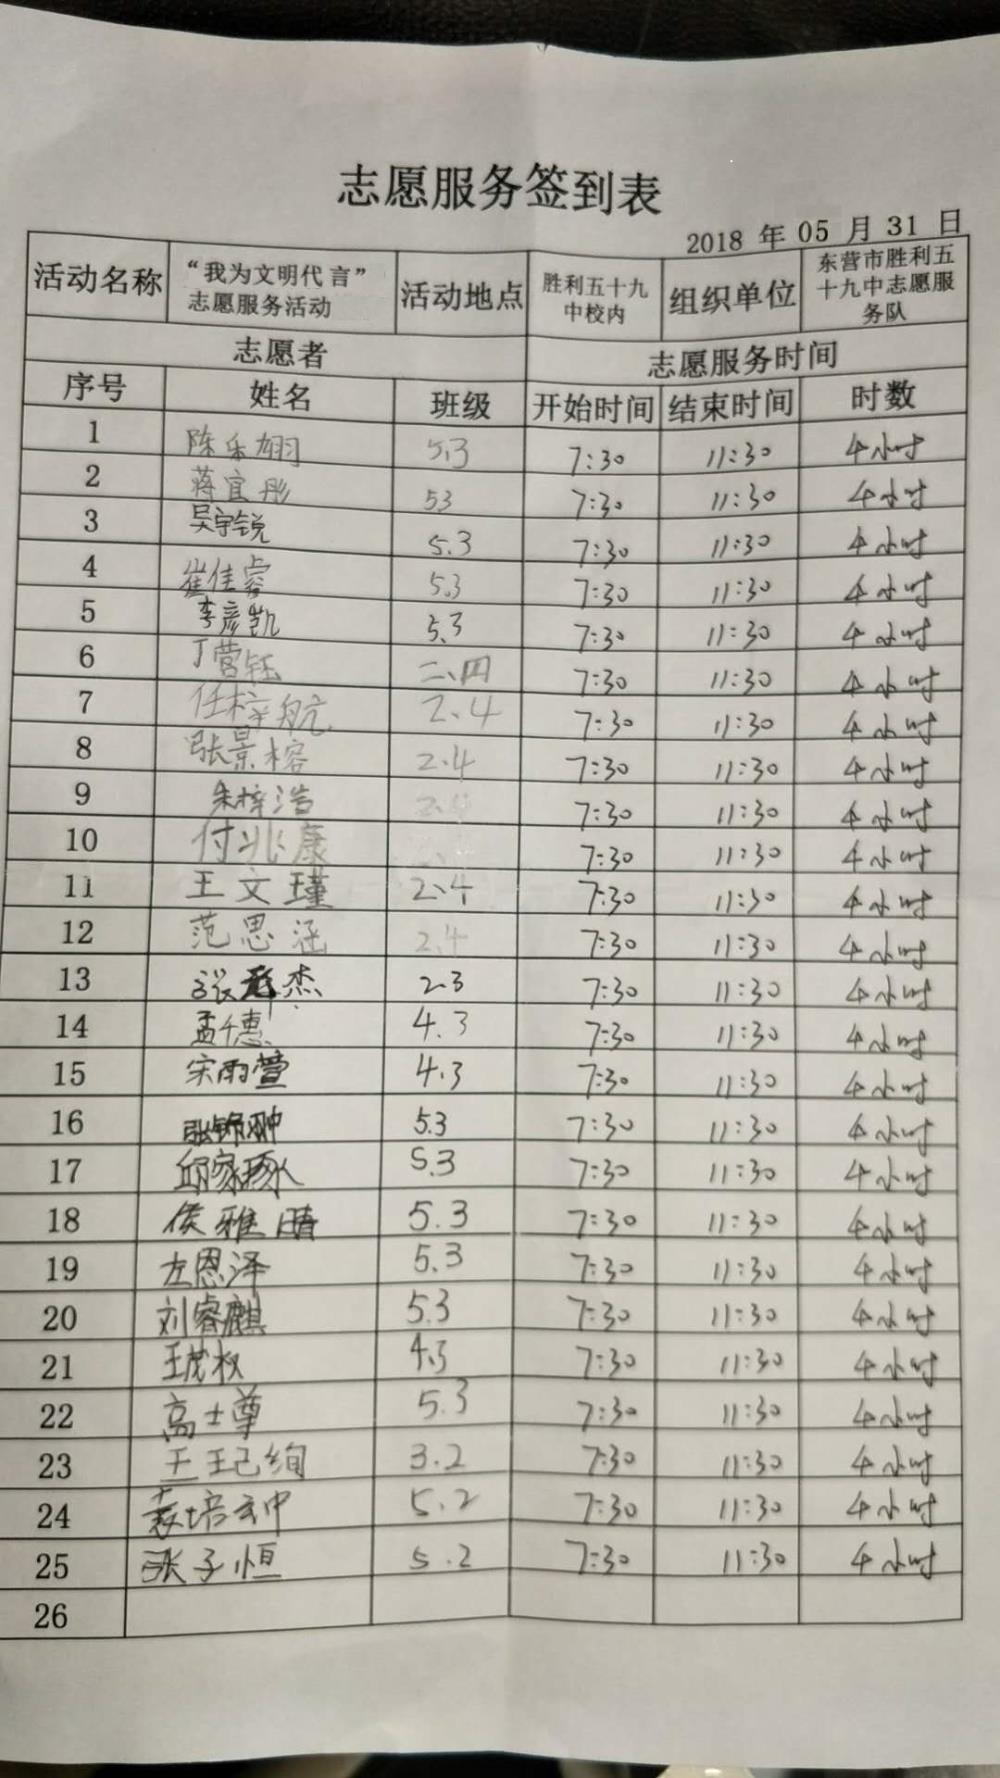 志愿服务签到表
2018 年 05 月 31 日
活动名称 “我为文明代言”志愿服务活动 活动地点 胜利五十九中校内 组织单位 东营市胜利五十九中志愿服务队
志愿者 志愿服务时间
序号 姓名 班级 开始时间 结束时间 时数
1 陈乐翊 5.3 7:30 11:30 4小时
2 蒋宜彤 53 7:30 11:30 4小时
3 吴宇锐 5.3 7:30 11:30 4小时
4 崔佳睿 5.3 7:30 11:30 4小时
5 李彦凯 5.3 7:30 11:30 4小时
6 丁营钰 二、四 7:30 11:30 4小时
7 任梓航 2、4 7:30 11:30 4小时
8 张景榕 2.4 7:30 11:30 4小时
9 朱梓浩 2.4 7:30 11:30 4小时
10 付兆康 7:30 11:30 4小时
11 王文瑾 2、4 7:30 11:30 4小时
12 范思涵 2.4 7:30 11:30 4小时
13 张 杰 2.3 7:30 11:30 4小时
14 孟千惠 4.3 7:30 11:30 4小时
15 宋雨萱 4.3 7:30 11:30 4小时
16 张锦翀 5.3 7:30 11:30 4小时
17 邱家 5.3 7:30 11:30 4小时
18 侯雅晴 5.3 7:30 11:30 4小时
19 左恩泽 5.3 7:30 11:30 4小时
20 刘睿麒 5.3 7:30 11:30 4小时
21 王茂权 4.3 7:30 11:30 4小时
22 高士尊 5.3 7:30 11:30 4小时
23 王 绚 3.2 7:30 11:30 4小时
24 袁培 5.2 7:30 11:30 4小时
25 张子恒 5.2 7:30 11:30 4小时
26